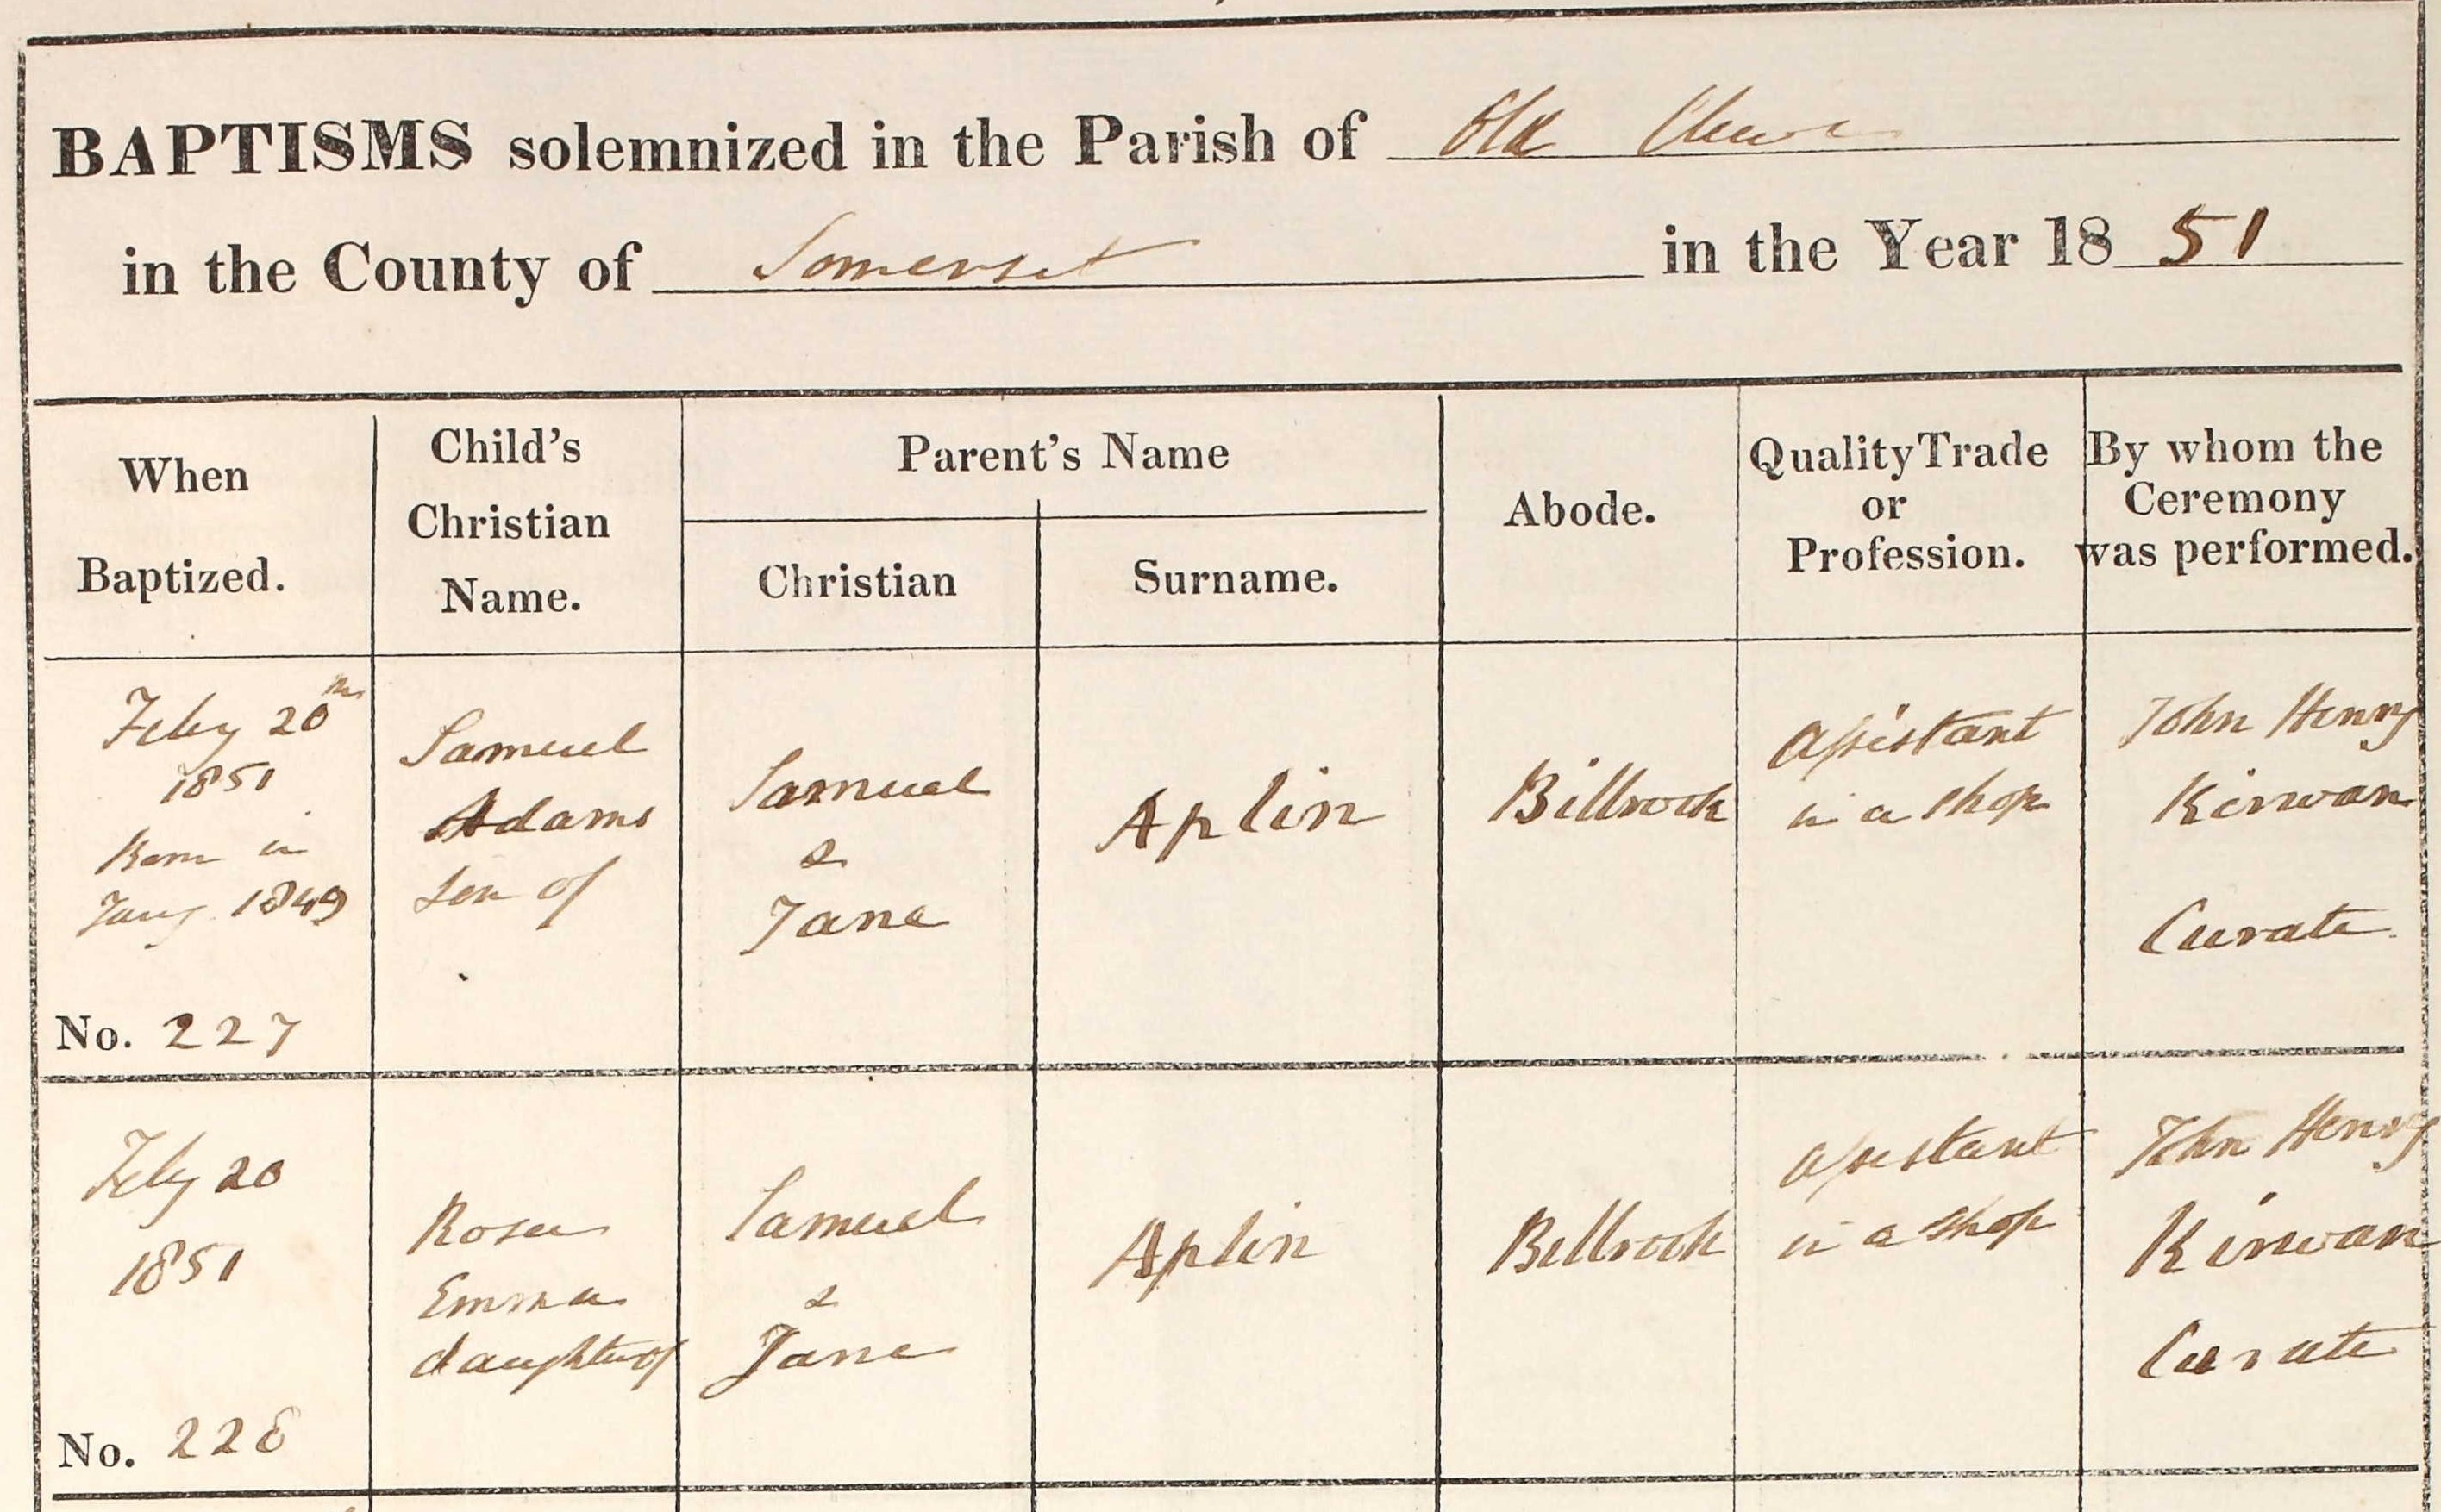 BAPTISMS solemnized in the Parish of Old Cleeve
in the County of Somerset in the Year 1851
When Baptized.
Child's Christian Name.
Parent's Name
Christian
Surname.
Abode.
Quality Trade or Profession.
By whom the Ceremony was performed.
Feby 20th
1851
Born in
Jany 1849
No. 227
Samuel
Adams
son of
Samuel
&
Jane
Aplin
Bilbrook
Assistant
in a shop
John Henry
Kirwan
Curate
Feby 20
1851
No. 228
Rosa
Emma
daughter of
Samuel
&
Jane
Aplin
Bilbrook
assistant
in a shop
John Henry
Kirwan
Curate